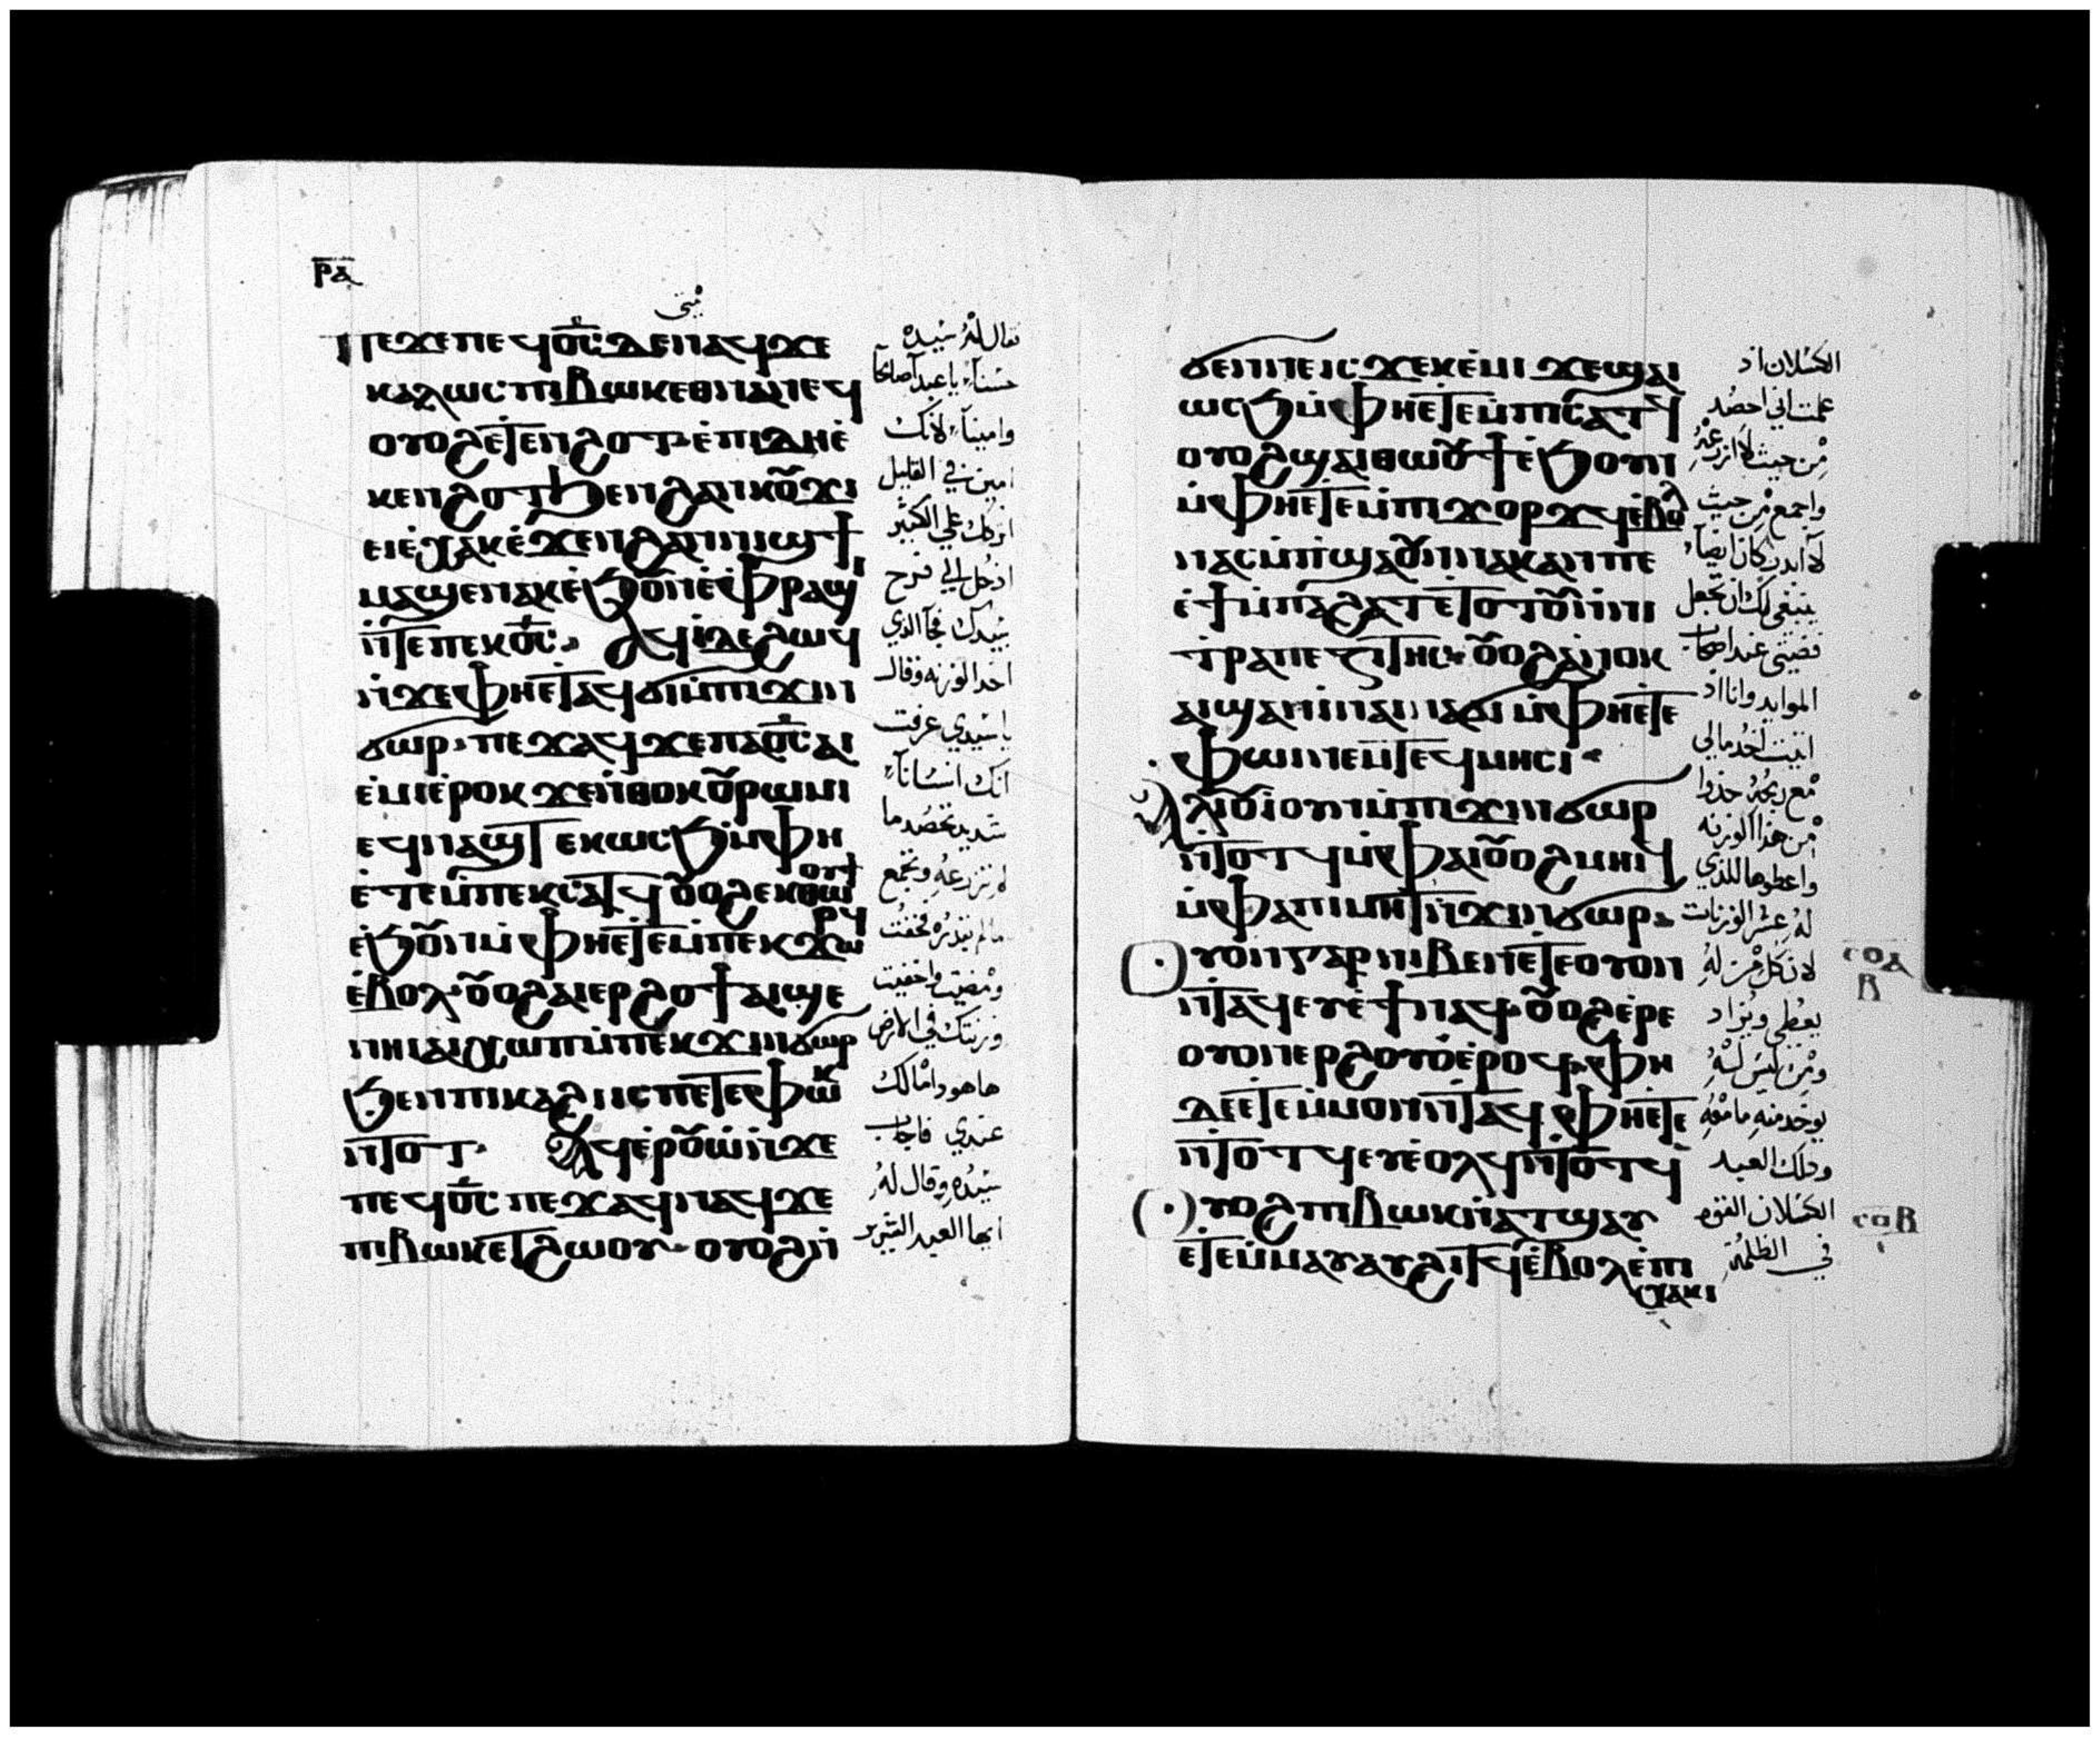 ⲣⲁ
متى
ⲡⲉϫⲉ ⲡⲉϥⲟ̅ⲥ̅ ⲇⲉ ⲛⲁϥ ϫⲉ
ⲕⲁⲗⲱⲥ ⲡⲓⲃⲱⲕ ⲉⲑⲛⲁⲛⲉϥ
ⲟⲩⲟϩ ⲉⲧⲉⲛϩⲟⲧ ⲉⲡⲓⲇⲏ ⲉ
ⲕⲉⲛϩⲟⲧ ϧⲉⲛ ϩⲁⲛⲕⲟⲩϫⲓ
ⲉⲓⲉⲭⲁⲕ ⲉϫⲉⲛ ϩⲁⲛⲛⲓϣϯ
ⲙⲁϣⲉⲛⲁⲕ ⲉϧⲟⲩⲛ ⲉⲫⲣⲁϣⲓ
ⲛ̀ⲧⲉ ⲡⲉⲕⲟ̅ⲥ̅ ⲁϥⲓ ⲇⲉ ϩⲱϥ
ⲛ̀ϫⲉ ⲫⲏⲉⲧⲁϥϭⲓ ⲙ̀ⲡⲓϫⲓⲛ
ϭⲱⲣ ⲡⲉϫⲁϥ ϫⲉ ⲡⲁⲟ̅ⲥ̅ ⲁⲓ
ⲉⲙⲓ ⲉⲣⲟⲕ ϫⲉ ⲛ̀ⲑⲟⲕ ⲟⲩⲣⲱⲙⲓ
ⲉϥⲛⲁϣⲧ ⲉⲕⲱⲥϧ ⲙ̀ⲫⲏ
ⲉⲧⲉ ⲙ̀ⲡⲉⲕⲥⲁⲧϥ ⲟⲩⲟϩ ⲉⲕⲑⲱⲟⲩϯ
ⲉϧⲟⲩⲛ ⲙ̀ⲫⲏⲉⲧⲉ ⲙ̀ⲡⲉⲕϫⲱⲣϥ
ⲉⲃⲟⲗ ⲟⲩⲟϩ ⲁⲓⲉⲣϩⲟϯ ⲁⲓϣⲉ
ⲛⲏⲓ ⲁⲓⲭⲱⲡ ⲙ̀ⲡⲉⲕϫⲓⲛϭⲱⲣ
ϧⲉⲛ ⲡⲓⲕⲁϩⲓ ⲓⲥ ⲡⲉⲧⲉⲫⲱⲕ
ⲛ̀ⲧⲟⲧ ⲁϥⲉⲣⲟⲩⲱ ⲛ̀ϫⲉ
ⲡⲉϥⲟ̅ⲥ̅ ⲡⲉϫⲁϥ ⲛⲁϥ ϫⲉ
ⲡⲓⲃⲱⲕ ⲉⲧϩⲱⲟⲩ ⲟⲩⲟϩ ⲛ̀
فقال له سيده
حسناً يا عبداً صالحاً
واميناً لانك
امين في القليل
اتركك علي الكثير
ادخل الي فرح
سيدك فجآ الذي
اخد الوزنه وقال
يا سيدي عرفت
انك انساناً
شديد تحصد ما
لم تزرعه وتجمع
ما لم تبدره فخفت
ومضيت واخفيت
وزنتك في الارض
هاهو دا مالك
عندي فاجاب
سيده وقال له
ايها العبد الشرير
ϭⲉⲛⲛⲉ ⲓⲥϫⲉ ⲕⲉⲙⲓ ϫⲉ ϣⲁⲓ
ⲱⲥϧ ⲙ̀ⲫⲏⲉⲧⲉ ⲙ̀ⲡⲓⲥⲁⲧϥ
ⲟⲩⲟϩ ϣⲁⲓⲑⲱⲟⲩϯ ⲉϧⲟⲩⲛ
ⲙ̀ⲫⲏⲉⲧⲉ ⲙ̀ⲡⲓϫⲟⲣϫϥ ⲉⲃⲟⲗ
ⲛⲁⲥⲙ̀ⲡϣⲁ ⲟⲩⲛ ⲛⲁⲕ ⲁⲛ ⲡⲉ
ⲉϯ ⲙ̀ⲡⲁϩⲁⲧ ⲉⲧⲟⲧⲟⲩ ⲛ̀ⲛⲓ
ⲧⲣⲁⲡⲉⲍⲓⲧⲏⲥ ⲟⲩⲟϩ ⲁⲛⲟⲕ
ⲁⲓϣⲁⲛⲓ ⲛⲁⲓⲛⲁϭⲓ ⲙ̀ⲫⲏⲉⲧⲉ
ⲫⲱⲓ ⲛⲉⲙ ⲧⲉϥⲙⲏⲥⲓ
ⲁⲗⲓⲟⲩⲓ ⲟⲩⲛ ⲙ̀ⲡⲓϫⲓⲛϭⲱⲣ
ⲛ̀ⲧⲟⲧϥ ⲙ̀ⲫⲁⲓ ⲟⲩⲟϩ ⲙⲏⲓϥ
ⲙ̀ⲫⲁ ⲡⲓⲙⲏⲧ ⲛ̀ϫⲓⲛϭⲱⲣ
ⲟⲩⲟⲛ ⲅⲁⲣ ⲛⲓⲃⲉⲛ ⲉⲧⲉ ⲟⲩⲟⲛ
ⲛ̀ⲧⲁϥ ⲉⲩⲉϯ ⲛⲁϥ ⲟⲩⲟϩ ⲉⲣⲉ
ⲟⲩⲟⲛ ⲉⲣϩⲟⲩⲟ ⲉⲣⲟϥ ⲫⲏ
ⲇⲉ ⲉⲧⲉ ⲙ̀ⲙⲟⲛ ⲛ̀ⲧⲁϥ ⲫⲏⲉⲧⲉ
ⲛ̀ⲧⲟⲧϥ ⲉⲩⲉⲟⲗϥ ⲛ̀ⲧⲟⲧϥ
ⲟⲩⲟϩ ⲡⲓⲃⲱⲕ ⲛ̀ⲁⲧϣⲁⲩ
ⲉⲧⲉⲙ̀ⲙⲁⲩ ⲁⲩϩⲓⲧϥ ⲉⲃⲟⲗ ⲉⲡⲓ
ⲭⲁⲕⲓ
الكسلان اد
علمت اني احصد
من حيث لا ازرعه
واجمع من حيث
لا ابدر كان ايضاً
ينبغي لك ان تجعل
فضتي عند اصحاب
الموايد وانا اد
اتيت اخد مالي
مع ربحه خدوا
من هدا الوزنه
واعطوها للذي
له عشر الوزنات
لان كل من له
يعطي ويزاد
ومن ليس له
يوخد منه ما معه
ودلك العبد
الكسلان القوه
في الظلمه
ⲥⲟⲁ
ⲃ
ⲥⲟⲃ